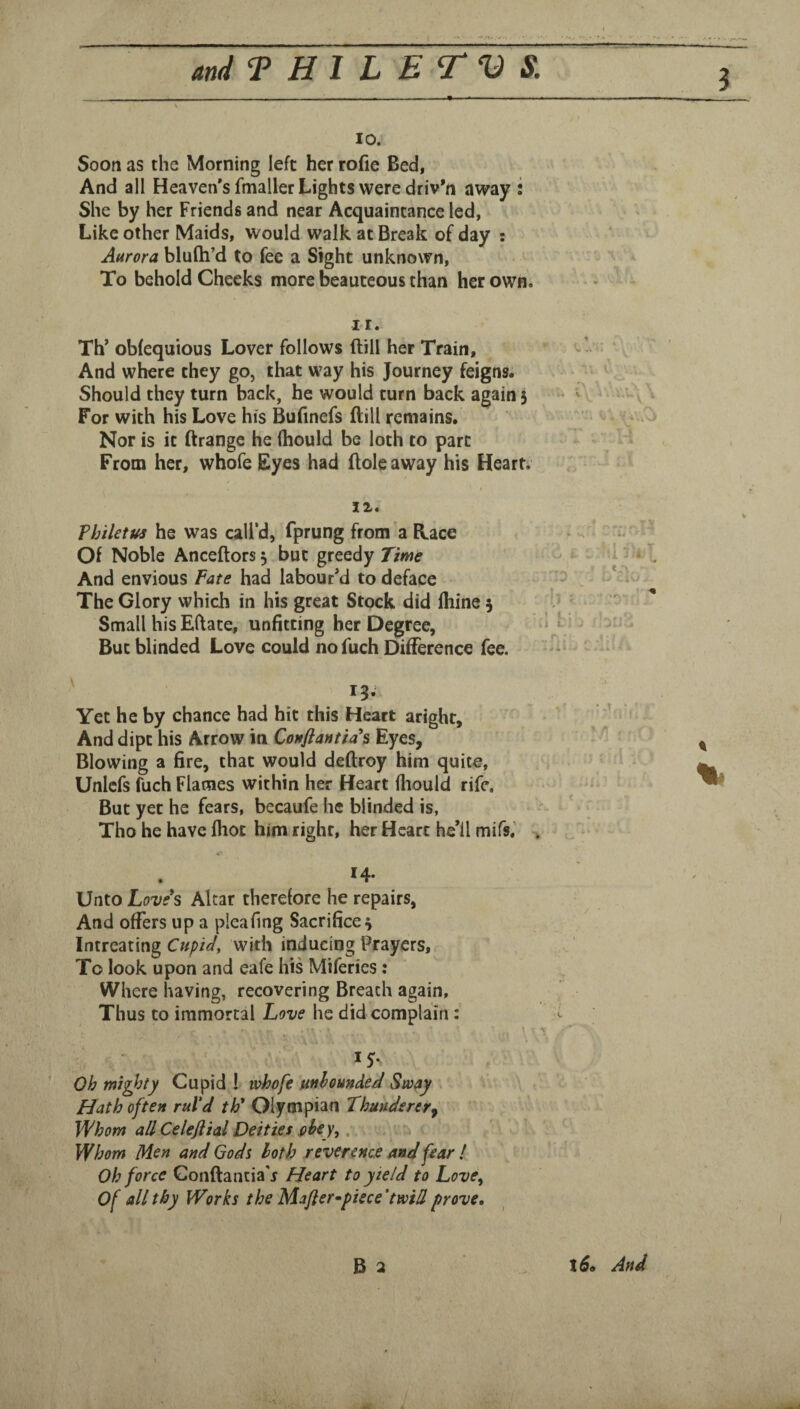 and PHILETVS.
3
10.
Soon as the Morning left her rosie Bed,
And all Heaven's smaller Lights were driv'n away :
She by her Friends and near Acquaintance led,
Like other Maids, would walk at Break of day :
Aurora blush'd to see a Sight unknown,
To behold Cheeks more beauteous than her own.
11.
Th' obsequious Lover follows still her Train,
And where they go, that way his Journey feigns.
Should they turn back, he would turn back again;
For with his Love his Business still remains.
Nor is it strange he should be loth to part
From her, whose Eyes had stole away his Heart.
12.
Philetus he was call'd, sprung from a Race
Of Noble Ancestors; but greedy Time
And envious Fate had labour'd to deface
The Glory which in his great Stock did shine;
Small his Estate, unfitting her Degree,
But blinded Love could no such Difference see.
13.
Yet he by chance had hit this Heart aright,
And dipt his Arrow in Constantia's Eyes,
Blowing a fire, that would destroy him quite,
Unless such Flames within her Heart should rise.
But yet he fears, because he blinded is,
Tho he have shot him right, her Heart he'll miss.
14.
Unto Love's Altar therefore he repairs,
And offers up a pleasing Sacrifice;
Intreating Cupid, with inducing Prayers,
To look upon and ease his Miseries :
Where having, recovering Breath again,
Thus to immortal Love he did complain :
15.
Oh mighty Cupid ! whose unbounded Sway
Hath often rul'd th' Olympian Thunderer,
Whom all Celestial Deities obey,
Whom Men and Gods both reverence and fear !
Oh force Constantia's Heart to yield to Love,
Of all thy Works the Master-piece 'twill prove.
B 2
16. And